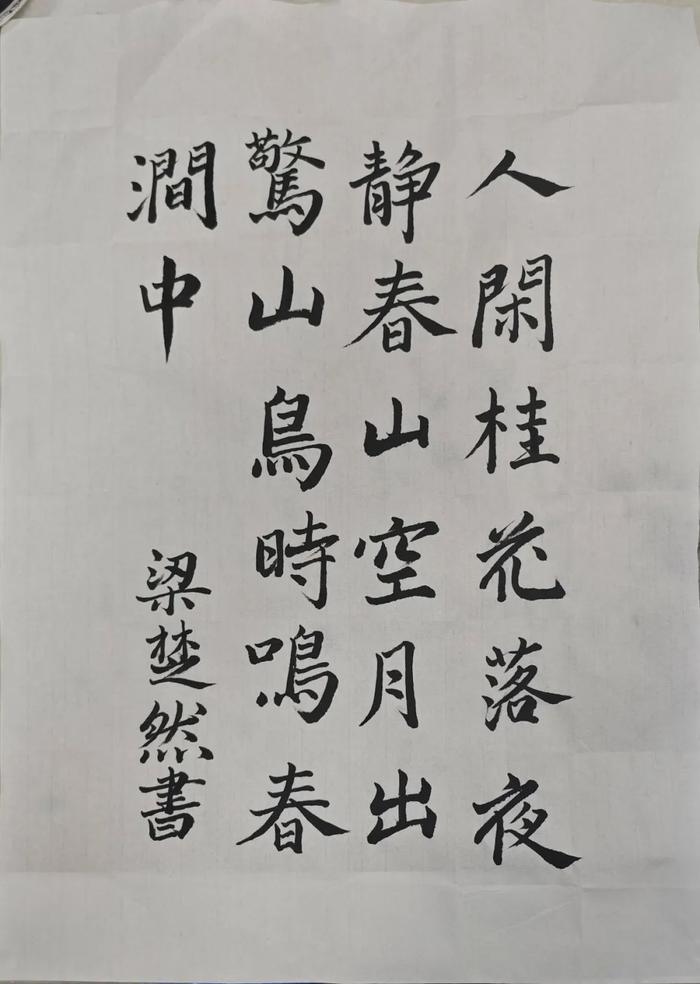 人閑桂花落夜
靜春山空月出
驚山鳥時鳴春
澗中
梁楚然書